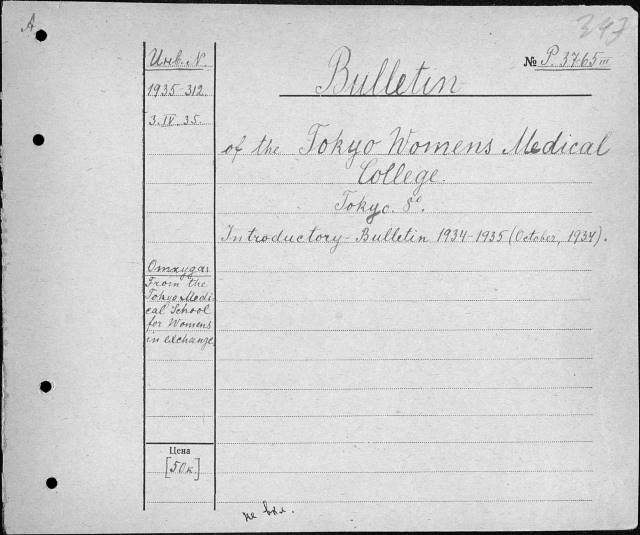 A
347
Инв. N.
1935-312.
3.IV.35.
№ P. 3765 III
Bulletin
of the Tokyo Womens Medical
College.
Tokyo. 8°.
Introductory-Bulletin 1934-1935 (October, 1934).
Откуда:
From the
Tokyo Medi-
cal School
for Womens
in exchange
Цена
[50к.]
не вкл.